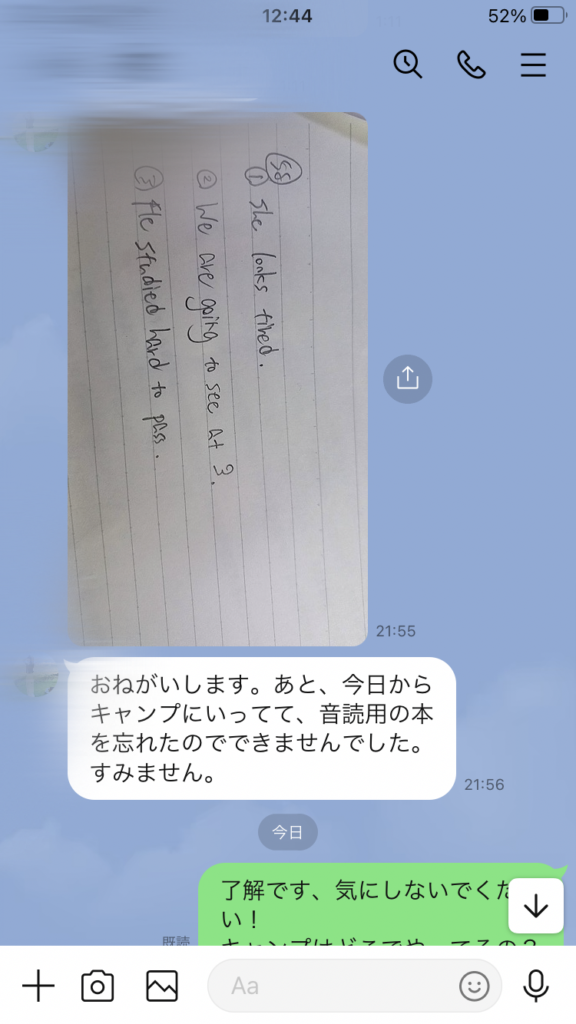 12:44
52%
58
① She looks tired.
② We are going to see at 3.
③ He studied hard to pass.
21:55
おねがいします。あと、今日から
キャンプにいってて、音読用の本
を忘れたのでできませんでした。
すみません。
21:56
今日
了解です、気にしないでくだ
い！
既読
キャンプはどこでやってるの？
Aa